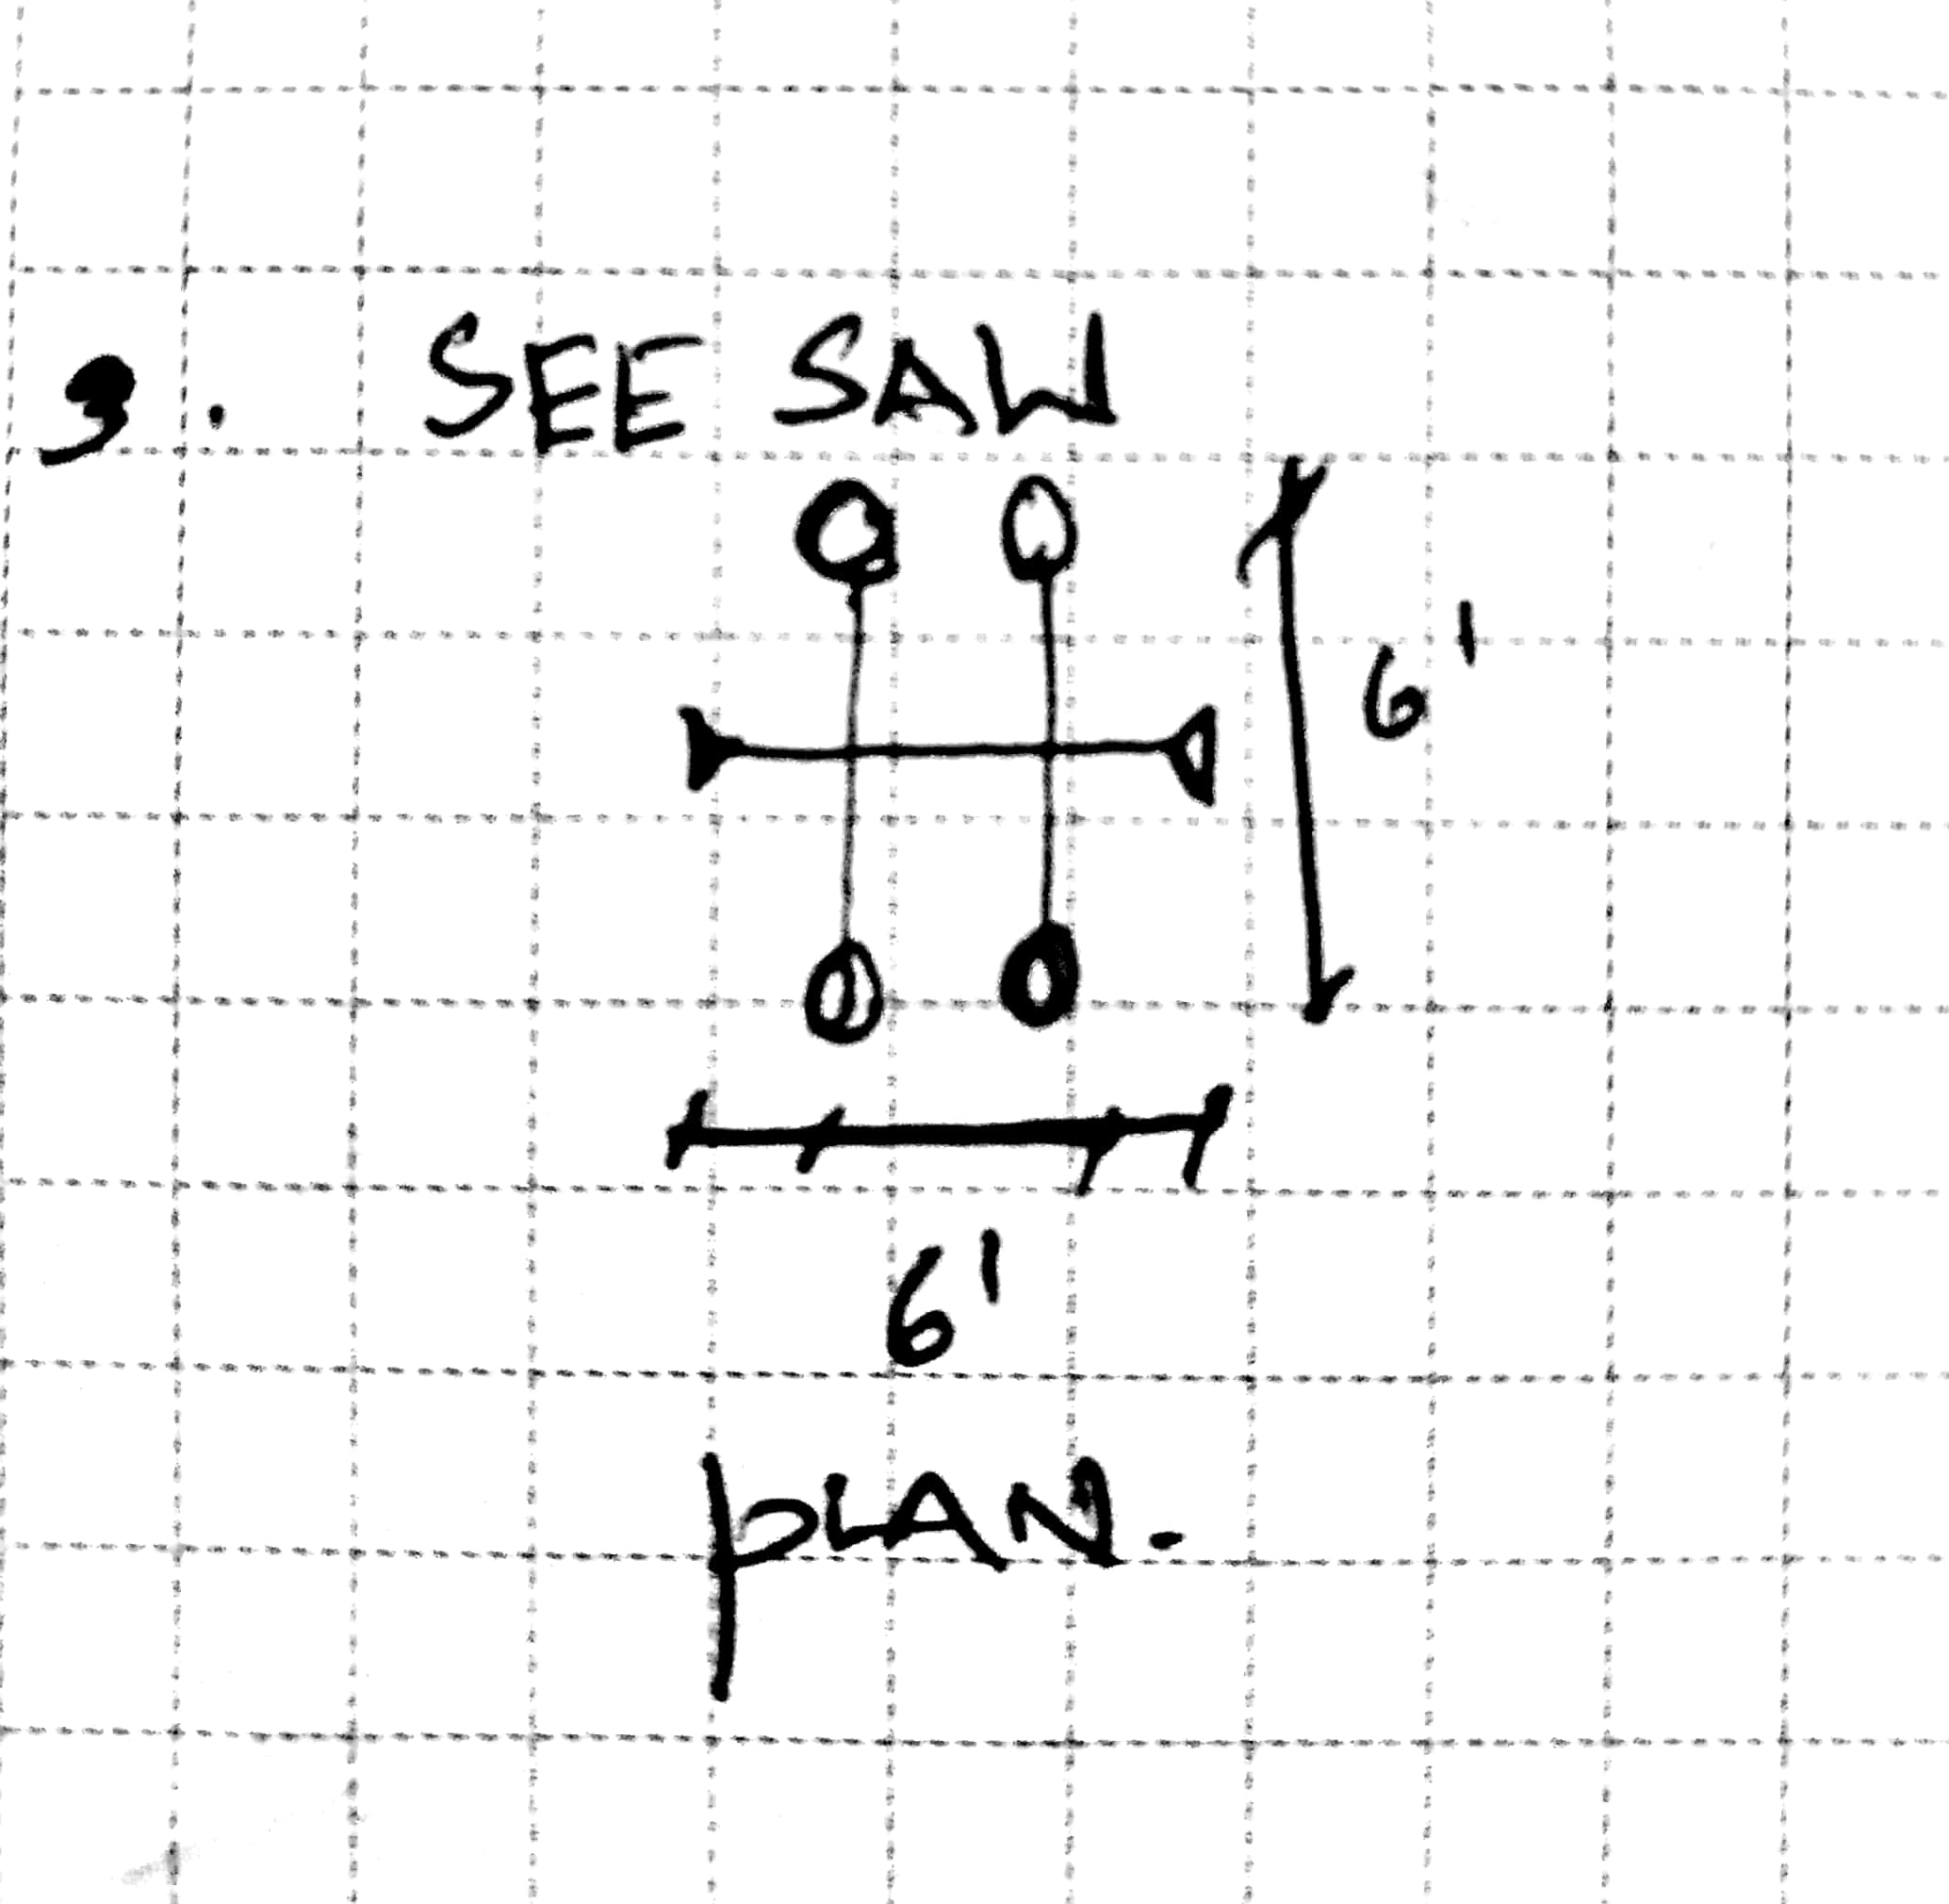 3. SEE SAW
6'
6'
PLAN.